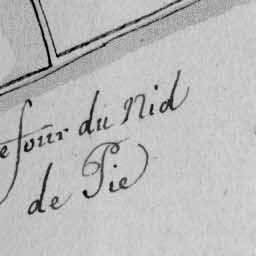 efour du Nid
de Pie